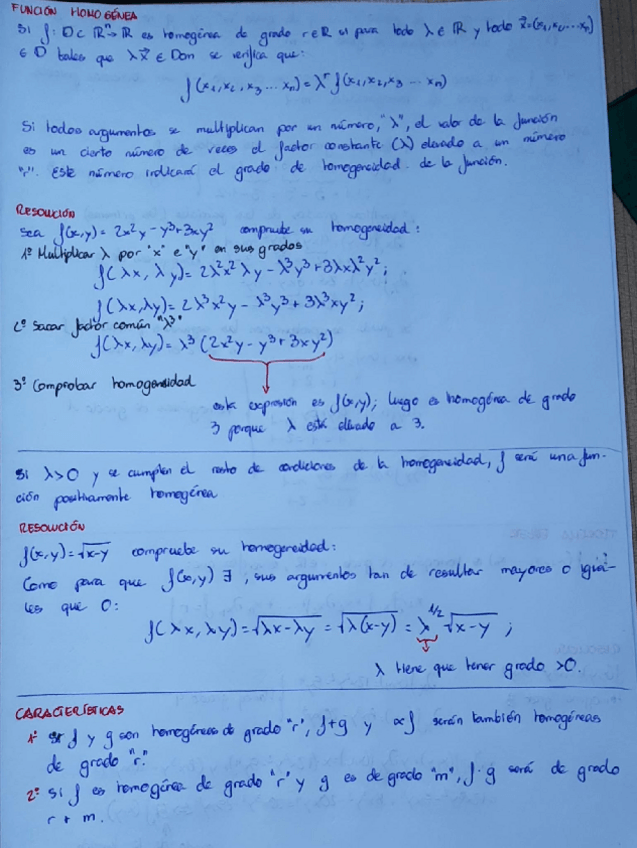 FUNCIÓN HOMOGÉNEA
Si f: D⊂ ℝⁿ→ℝ es homogénea de grado r∈ℝ si para todo λ∈ℝ y todo x⃗=(x₁,x₂,...xₙ)
∈ D tales que λx⃗ ∈ Dom se verifica que:
f(x₁,x₂,x₃...xₙ)=λʳ f(x₁,x₂,x₃...xₙ)
Si todos argumentos se multiplican por un número, "λ", el valor de la función
es un cierto número de veces el factor constante (λ) elevado a un número
"r". Este número indicará el grado de homogeneidad de la función.
RESOLUCIÓN
Sea f(x,y)= 2x²y - y³+3xy² compruebe su homogeneidad:
1º Multiplicar λ por "x" e "y" en sus grados
f(λx, λy)= 2λ²x²λy - λ³y³+3λxλ²y²;
f(λx,λy)= 2λ³x²y - λ³y³+3λ³xy²;
2º Sacar factor común "λ³"
f(λx,λy)= λ³(2x²y-y³+3xy²)
3º Comprobar homogeneidad
esta expresión es f(x,y); luego es homogénea de grado
3 porque λ está elevado a 3.
Si λ>0 y se cumplen el resto de condiciones de la homogeneidad, f será una fun-
ción positivamente homogénea
RESOLUCIÓN
f(x,y)=√x-y compruebe su homogeneidad:
Como para que f(x,y) ∃, sus argumentos han de resultar mayores o igua-
les que 0:
f(λx, λy)=√λx-λy = √λ(x-y) = λ^1/2 √x-y ;
λ tiene que tener grado >0.
CARACTERÍSTICAS
1ª Si f y g son homogéneas de grado "r", f+g y ∝f serán también homogéneas
de grado "r."
2ª Si f es homogénea de grado "r" y g es de grado "m", f·g será de grado
r+m.